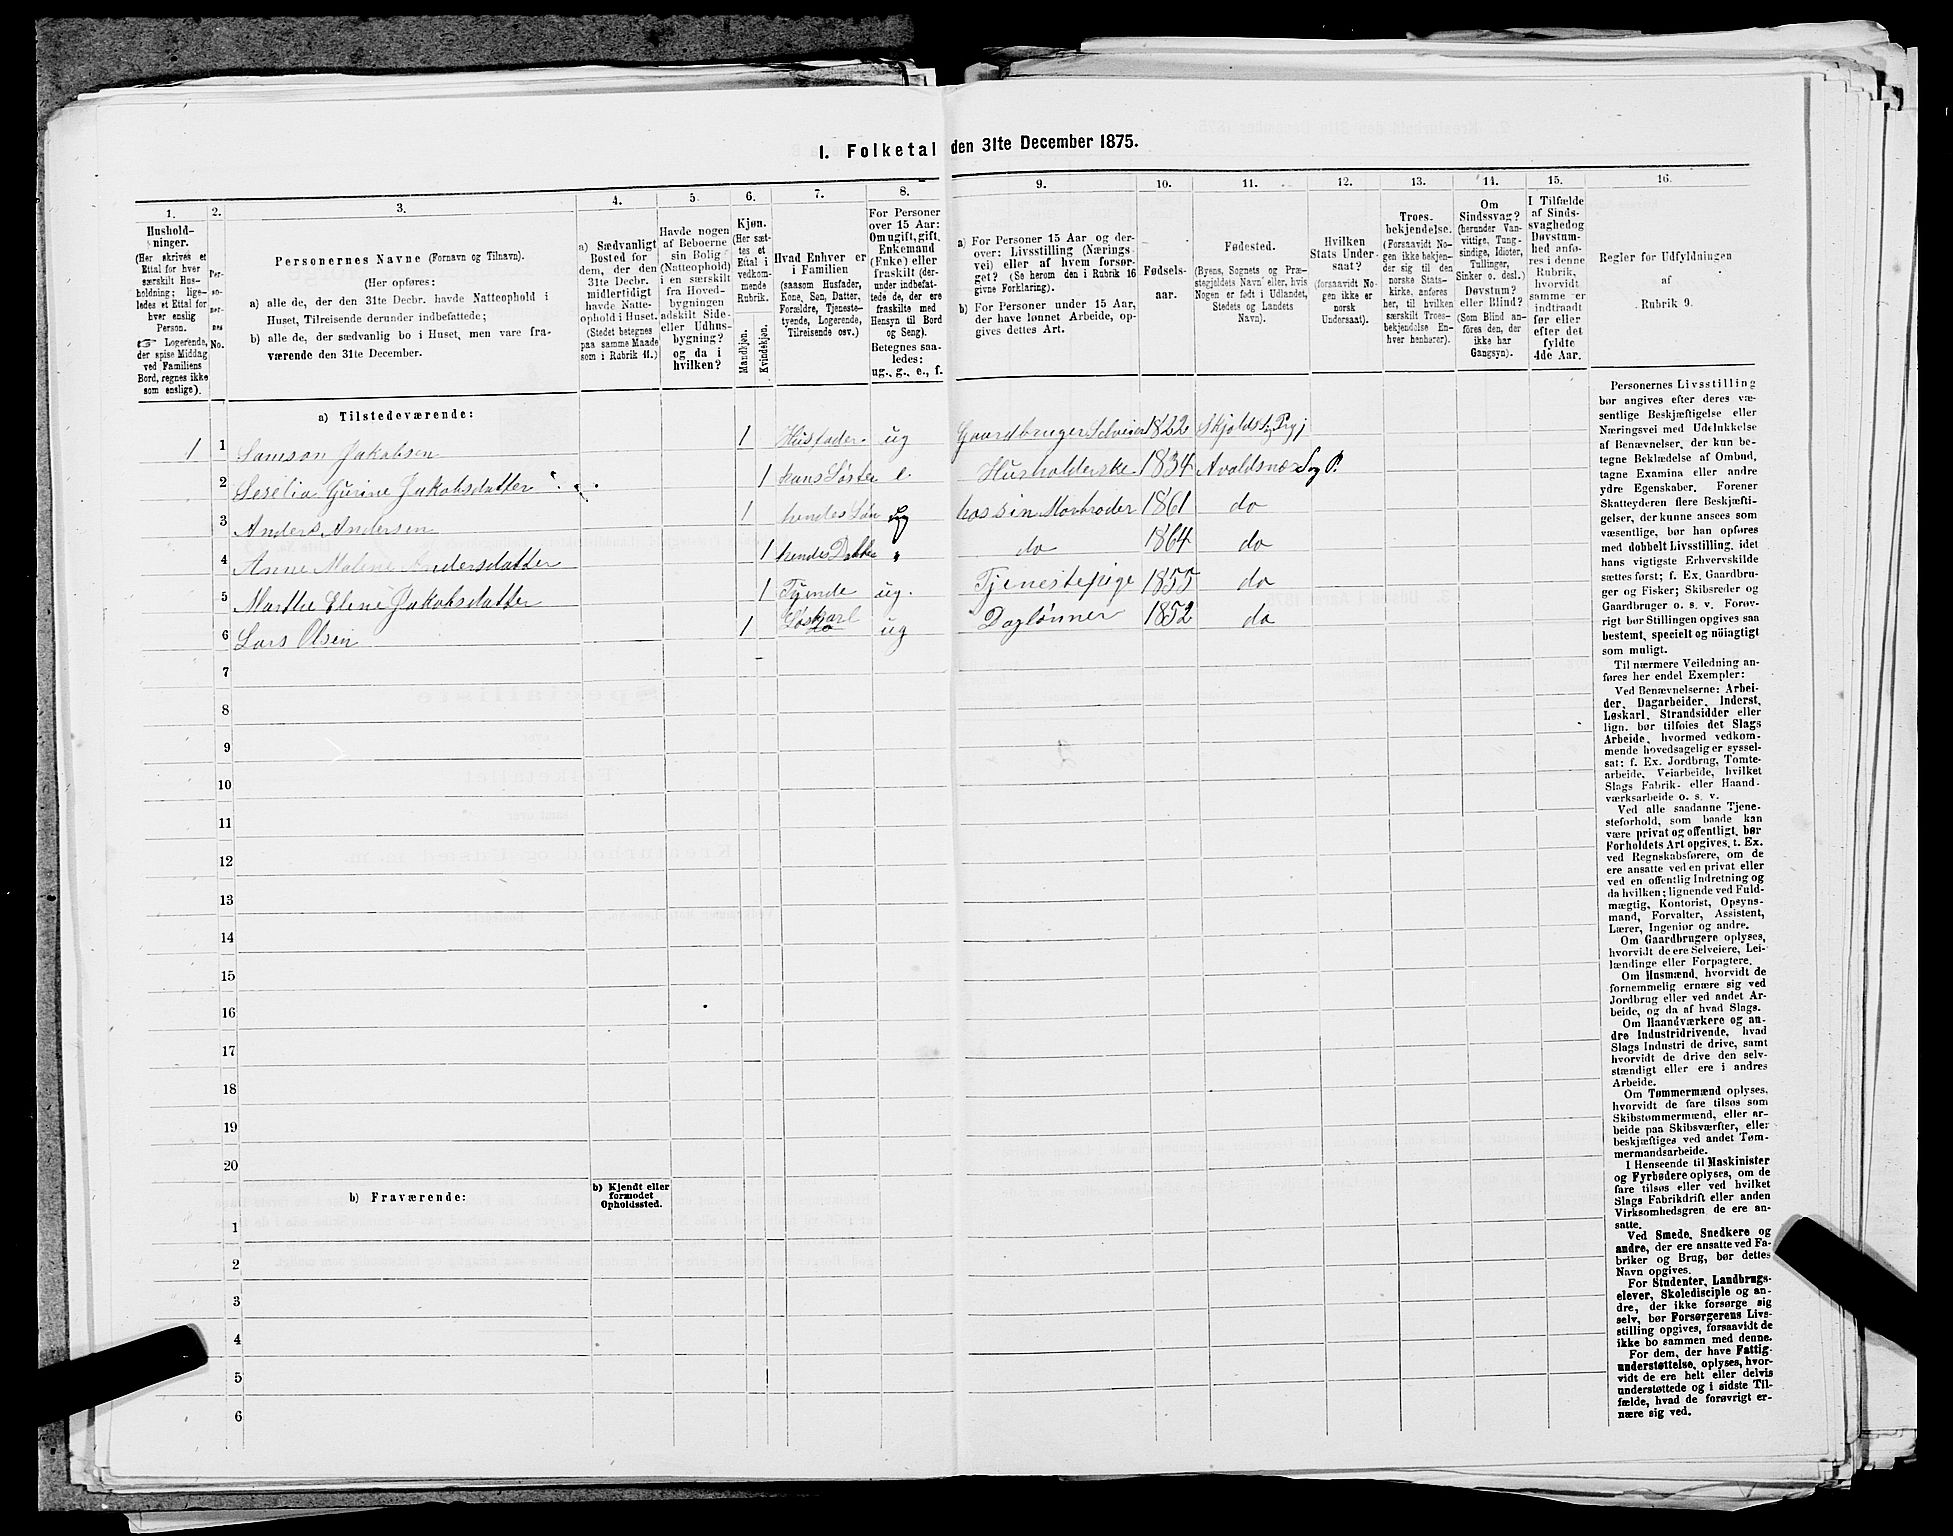 I. Folketal den 31te December 1875.
1. 2. 3. 4. 5. 6. 7. 8. 9. 10. 11. 12. 13. 14. 15. 16.
Hushold-
ninger.
(Her skrives et
Ettal for hver
særskilt Hus-
holdning; lige-
ledes et Ettal for
hver enslig
Person.
☞ Logerende,
der spise Middag
ved Familiens
Bord, regnes ikke
som enslige).
Per-
so-
ner-
nes
No.
Personernes Navne (Fornavn og Tilnavn).
(Her opføres:
a) alle de, der den 31te Decbr. havde Natteophold i
Huset, Tilreisende derunder indbefattede;
b) alle de, der sædvanlig bo i Huset, men vare fra-
værende den 31te December.
a) Sædvanligt
Bosted for
dem, der den
31te Decbr.
midlertidigt
havde Natte-
ophold i Huset.
(Stedet betegnes
paa samme Maade
som i Rubrik 11.)
Havde nogen
af Beboerne
sin Bolig
(Natteophold)
i en særskilt
fra Hoved-
bygningen
adskilt Side-
eller Udhus-
bygning?
og da i
hvilken?
Kjøn.
(Her sæt-
tes et
Ettal i
vedkom-
mende
Rubrik.
Mandkjøn.
Kvindekjøn.
Hvad Enhver er
i Familien
(saasom Husfader,
Kone, Søn, Datter,
Forældre, Tjeneste-
tyende, Logerende,
Tilreisende osv.)
For Personer
over 15 Aar:
Om ugift, gift,
Enkemand
(Enke) eller
fraskilt (der-
under indbefat-
tede de, der ere
fraskilte med
Hensyn til Bord
og Seng).
Betegnes saa-
ledes:
ug., g., e., f.
a) For Personer 15 Aar og der-
over: Livsstilling (Nærings-
vei) eller af hvem forsør-
get? (Se herom den i Rubrik 16
givne Forklaring).
b) For Personer under 15 Aar,
der have lønnet Arbeide, op-
gives dettes Art.
Fødsels-
aar.
Fødested.
(Byens, Sognets og Præ-
stegjeldets Navn eller, hvis
Nogen er født i Udlandet,
Stedets og Landets
Navn).
Hvilken
Stats Under-
saat?
(forsaavidt No-
gen ikke er
norsk
Undersaat).
Troes-
bekjendelse.
(Forsaavidt No-
gen ikke bekjen-
der sig til den
norske Stats-
kirke, anføres
her, til hvilken
særskilt Troes-
bekjendelse En-
hver henhører).
Om
Sindssvag?
(herunder Van-
vittige, Tung-
sindige, Idioter,
Tullinger,
Sinker o. desl.)
Døvstum?
eller Blind?
(Som Blind an-
føres den, der
ikke har
Gangsyn).
I Tilfælde
af Sinds-
svaghed og
Døvstum-
hed anfø-
res i denne
Rubrik,
hvorvidt
samme er
indtraadt
før eller
efter det
fyldte
4de Aar.
Regler for Udfyldningen
af
Rubrik 9.
a) Tilstedeværende:
1 1 Samson Jakobsen 1 Husfader ug Gaardbruger Selveier 1822 Skjolds
2 Seselia Gurine Jakobsdatter 1 hans Søster e Husholderske 1834 Avaldsnæs Sog P.
3 Anders Andersen 1 hendes Søn hos sin Morbroder 1861 do
4 Anne Malene Andersdatter 1 hendes Datter " do 1864 do
5 Marthe Elene Jakobsdatter 1 Tyende ug. Tjenestepige 1855 do
6 Lars Olsen 1 Løskarl ug Daglønner 1852 do
7
8
9
10
11
12
13
14
15
16
17
18
19
20
b) Fraværende:
b) Kjendt eller
formodet
Opholdssted.
1
2
3
4
5
6
Personernes Livsstilling
bør angives efter deres væ-
sentlige Beskjæftigelse eller
Næringsvei med Udelukkelse
af Benævnelser, der kun be-
tegne Beklædelse af Ombud,
tagne Examina eller andre
ydre Egenskaber. Forener
Skatteyderen flere Beskjæfti-
gelser, der kunne ansees som
væsentlige, bør han opføres
med dobbelt Livsstilling, idet
hans vigtigste Erhvervskilde
sættes først; f. Ex. Gaardbru-
ger og Fisker; Skibsreder og
Gaardbruger o. s. v. Forøv-
rigt bør Stillingen opgives saa
bestemt, specielt og nöiagtigt
som muligt.
Til nærmere Veiledning an-
føres her endel Exempler:
Ved Benævnelserne: Arbei-
der, Dagarbeider, Inderst,
Løskarl, Strandsidder eller
lign. bør tilføies det Slags
Arbeide, hvormed vedkom-
mende hovedsagelig er syssel-
sat; f. Ex. Jordbrug, Tomte-
arbeide, Veiarbeide, hvilket
Slags Fabrik- eller Haand-
værksarbeide o. s. v.
Ved alle saadanne Tjene-
steforhold, som baade kan
være privat og offentligt, bør
Forholdets Art opgives, t. Ex.
ved Regnskabsførere, om de
ere ansatte ved en privat eller
ved en offentlig Indretning og
da hvilken; lignende ved Fuld-
mægtig, Kontorist, Opsyns-
mand, Forvalter, Assistent,
Lærer, Ingeniør og andre.
Om Gaardbrugere oplyses,
hvorvidt de ere Selveiere, Lei-
lændinge eller Forpagtere.
Om Husmænd, hvorvidt de
fornemmelig ernære sig ved
Jordbrug eller ved andet Ar-
beide, og da af hvad Slags.
Om Haandværkere og an-
dre Industridrivende, hvad
Slags Industri de drive, samt
hvorvidt de drive den selv-
stændigt eller ere i andres
Arbeide.
Om Tømmermænd oplyses,
hvorvidt de fare tilsøs som
Skibstømmermænd, eller ar-
beide paa Skibsværfter, eller
beskjæftiges ved andet Tøm-
mermandsarbeide.
I Henseende til Maskinister
og Fyrbødere oplyses, om de
fare tilsøs eller ved hvilket
Slags Fabrikdrift eller anden
Virksomhedsgren de ere an-
satte.
Ved Smede, Snedkere og
andre, der ere ansatte ved Fa-
briker og Brug, bør dettes
Navn opgives.
For Studenter, Landbrugs-
elever, Skoledisciple og an-
dre, der ikke forsørge sig
selv, bør Forsørgerens Livs-
stilling opgives, forsaavidt de
ikke bo sammen med denne.
For dem, der have Fattig-
understøttelse, oplyses, hvor-
vidt de ere helt eller delvis
understøttede og i sidste Til-
fælde, hvad de forøvrigt er-
nære sig ved.